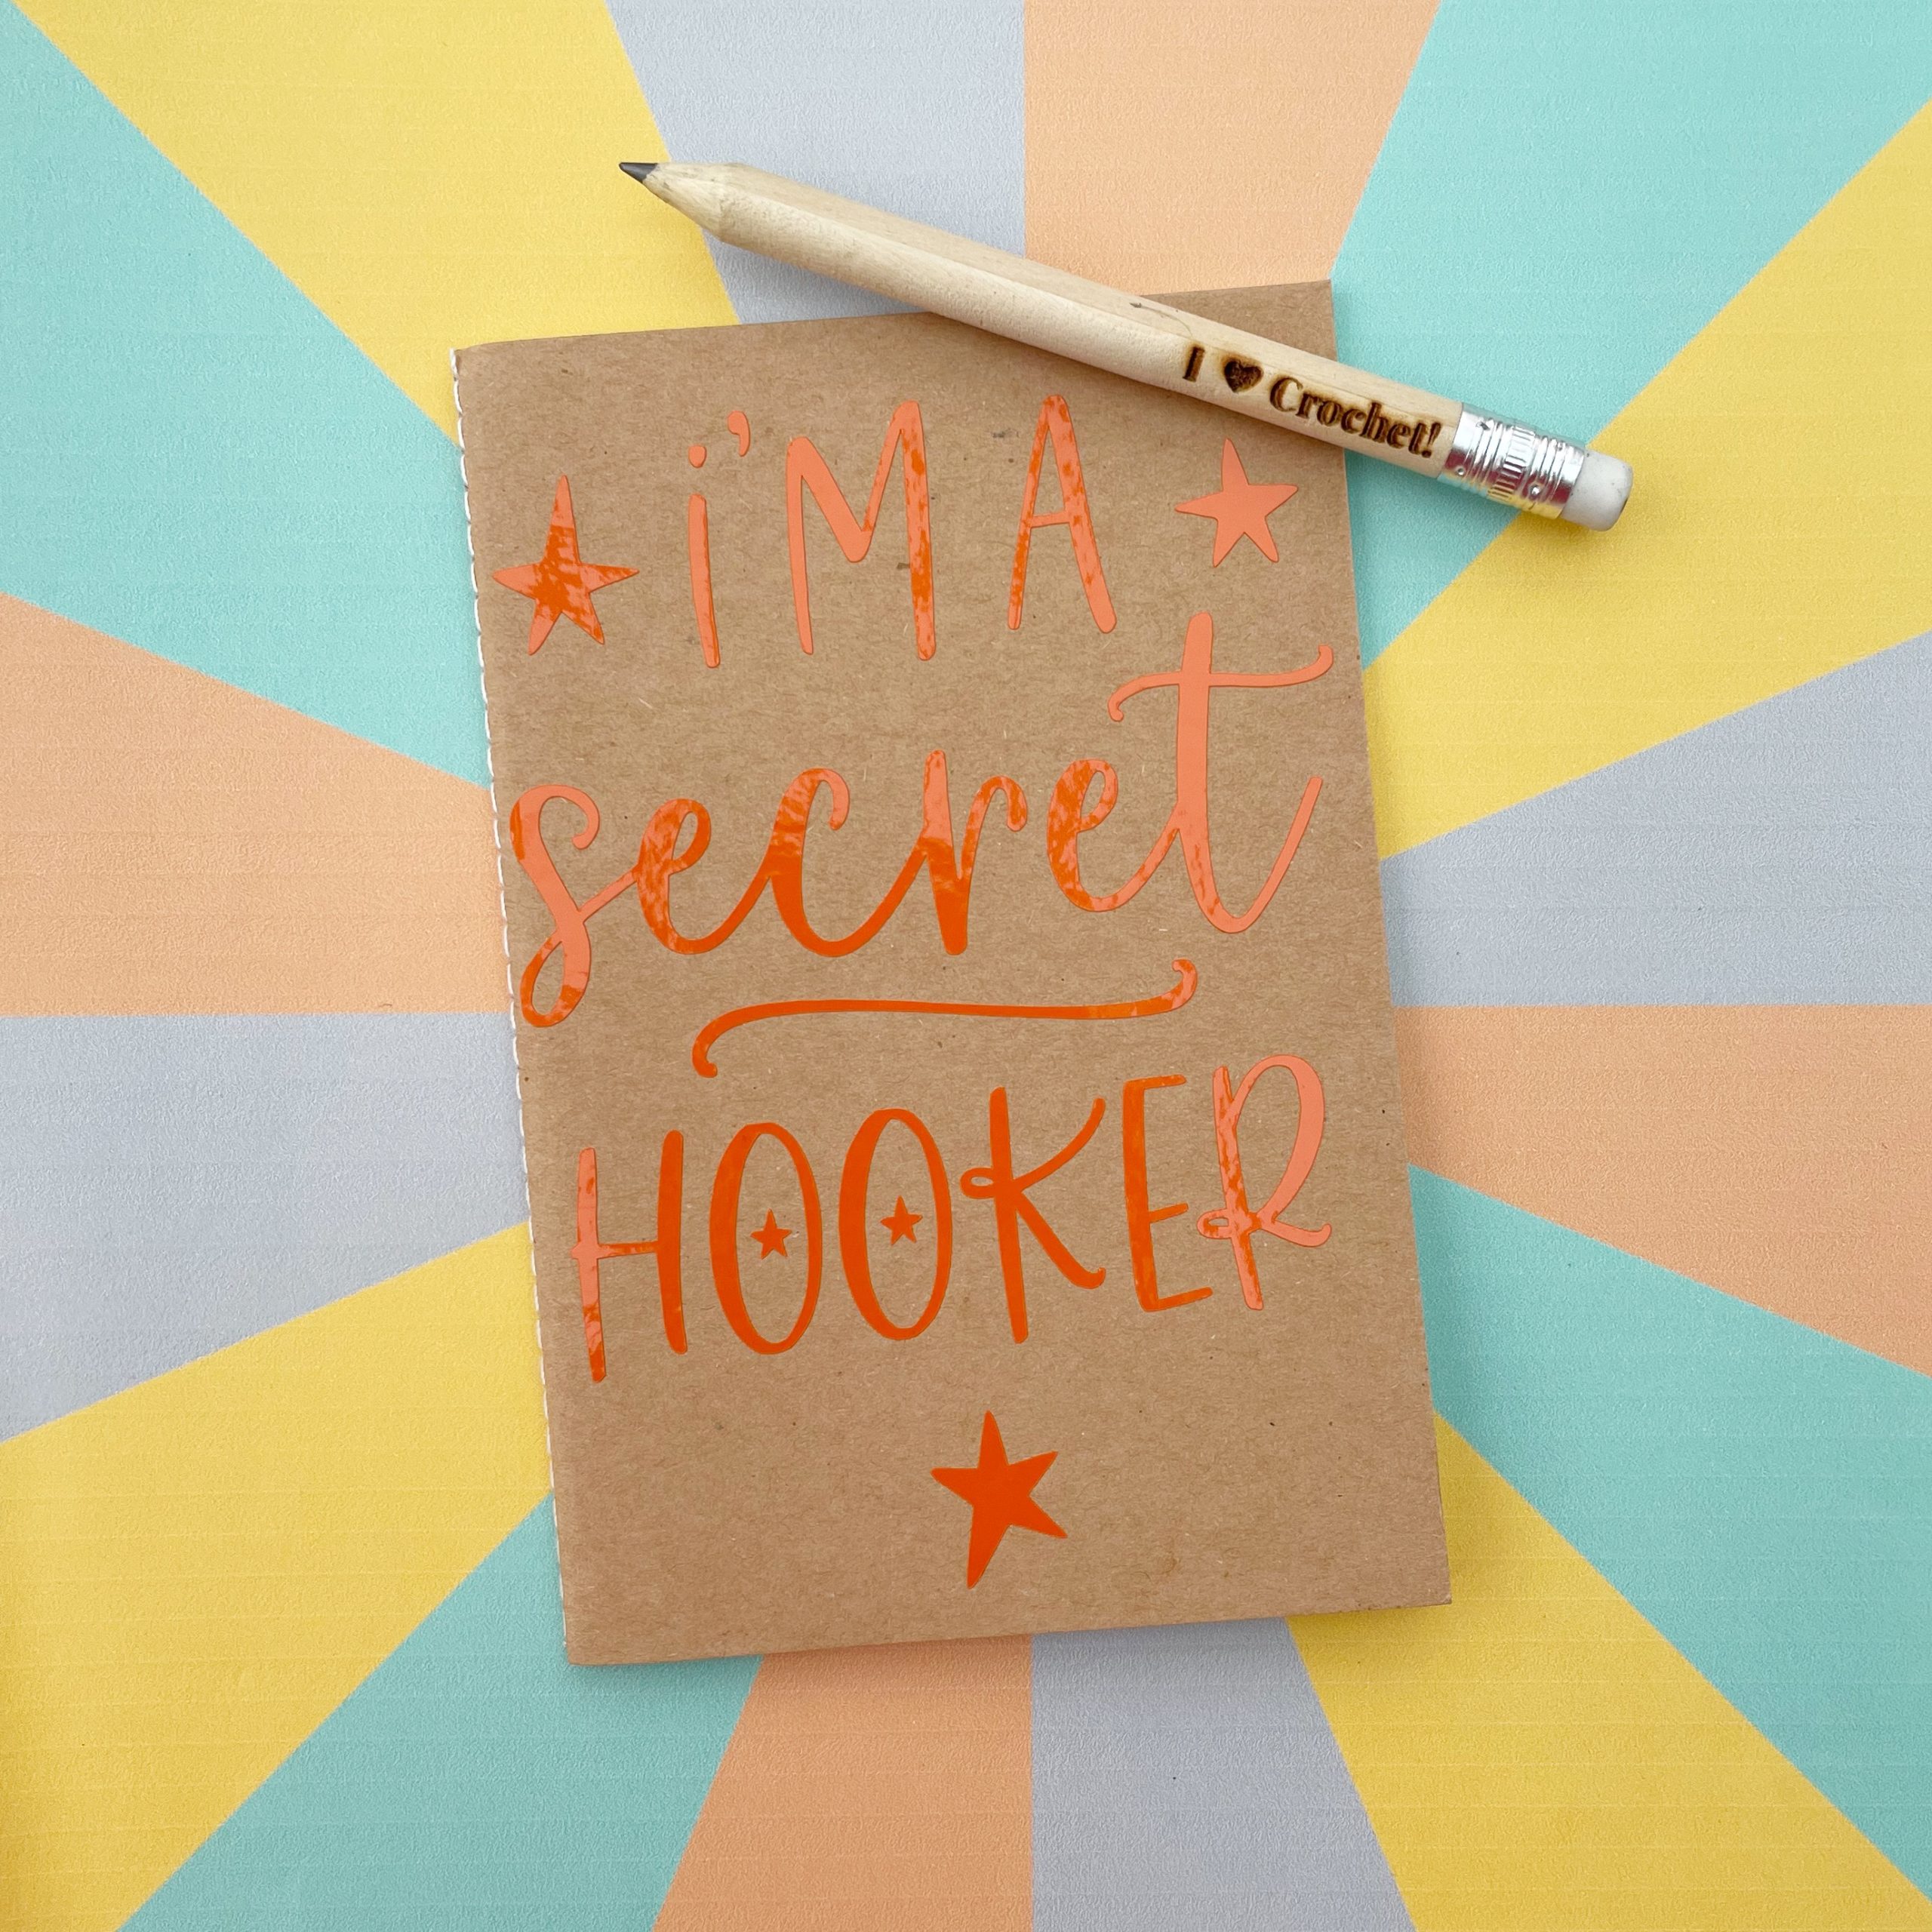 I ♥ Crochet!
i'M A
secret
HOOKER